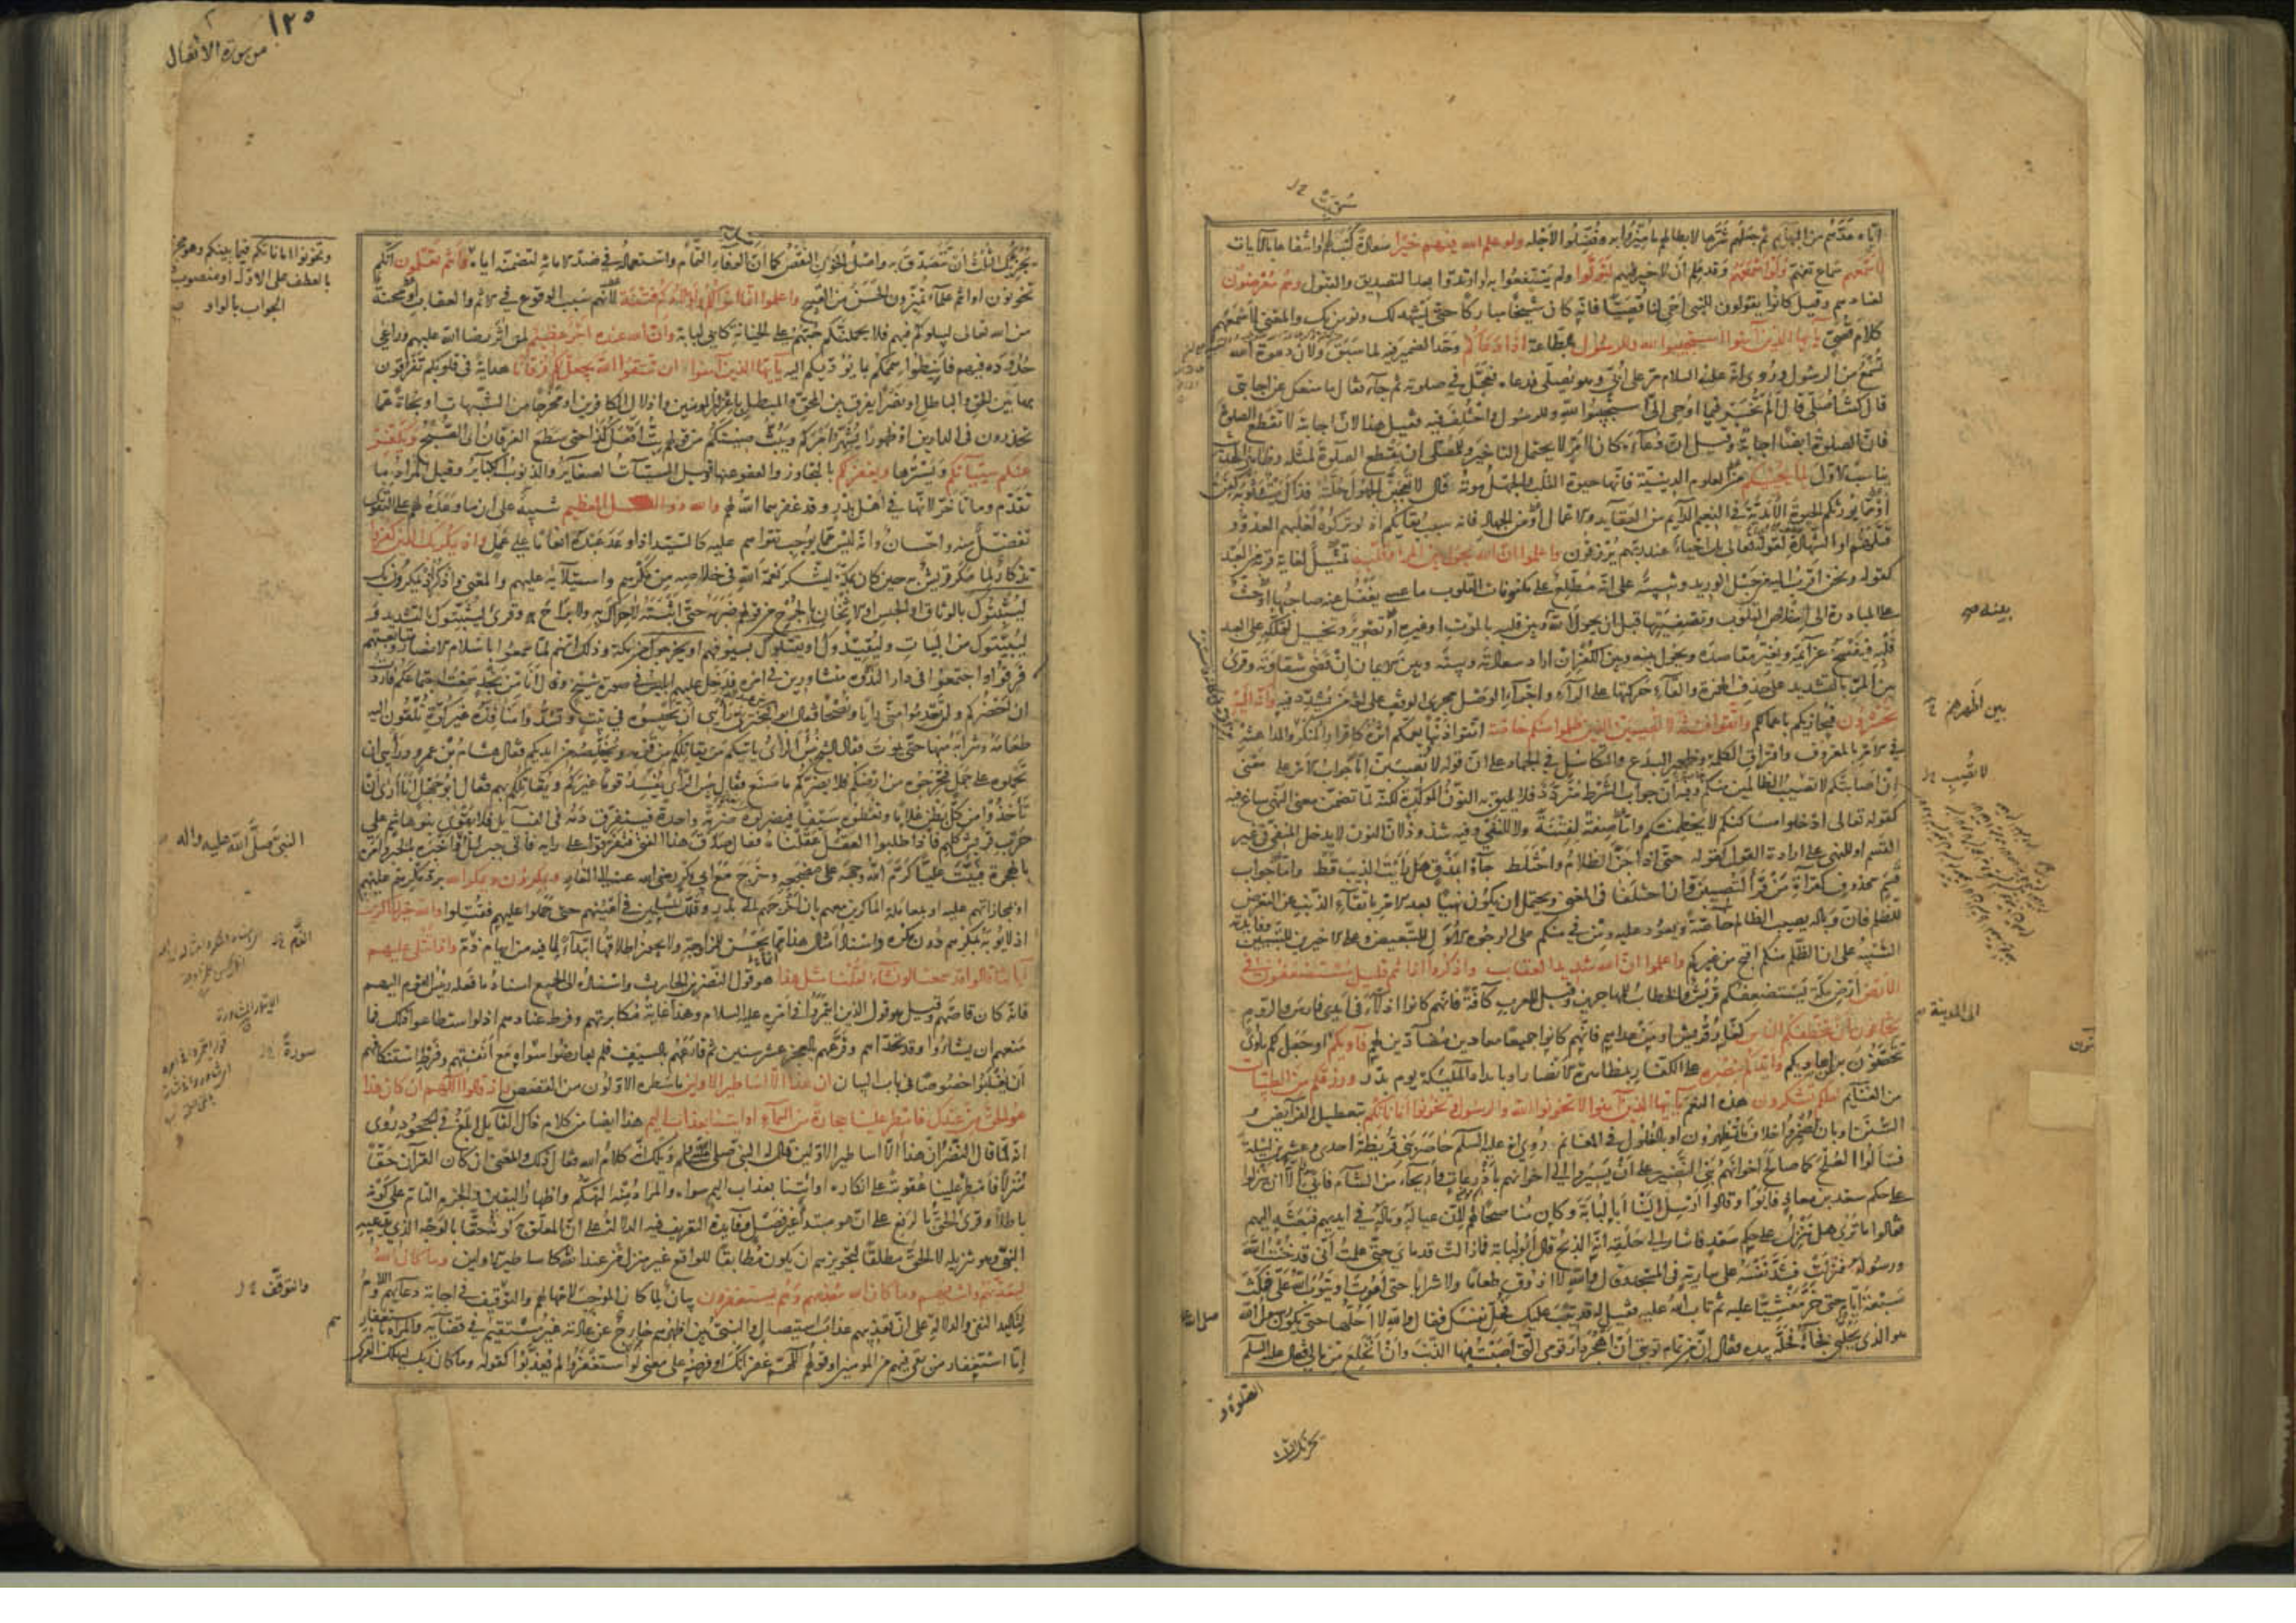 اياه عدّهم من البهايم ثم جعلهم شرّها لابطالهم ما ميّزوا به وفضّلوا لاجله ولو علم الله فيهم خيرًا سعادة كتبت لهم او انتفاعا بالآيات
لاسمعهم سماع تفهّم ولو اسمعهم وقد علم ان لا خير فيهم لتولّوا ولم ينتفعوا به او ارتدّوا بعد التصديق والقبول وهم معرضون
لعنادهم وقيل كانوا يقولون للنبي احي لنا قصيّا فانه كان شيخًا مباركًا حتى يشهد لك ونؤمن بك والمعنى لاسمعهم
كلام قصيّ يا ايها الذين آمنوا استجيبوا لله وللرسول بالطاعة اذا دعاكم وحّد الضمير فيه لما سبق ولانّ دعوة الله
تسمع من الرسول وروى انه عليه السلام مرّ على ابيّ وهو يصلّي فدعاه فعجّل في صلوته ثم جاء فقال ما منعك عن اجابتي
قال كنت اصلّي قال الم تخبر فيما اوحي اليّ استجيبوا لله وللرسول واختلف فيه فقيل هذا لانّ اجابته لا تقطع الصلوة
فانّ الصلوة ايضا اجابة وقيل انّ دعاءه كان لامر لا يحتمل التاخير وللمصلّي ان يقطع الصلوة لمثله وظاهر الحديث
يناسب الاوّل لما يحييكم من العلوم الدينيّة فانها حيوة القلب والجهل موته قال لا تعجبنّ الجهول حلّته فذاك ميت وثوبه كفن
او ممّا يورثكم الحيوة الابديّة في النعيم الدايم من العقايد والاعمال او من الجهاد فانه سبب بقائكم اذ لو تركوه لغلبهم العدوّ و
قتلهم او الشهادة لقوله تعالى بل احياء عند ربهم يرزقون واعلموا انّ الله يحول بين المرء وقلبه تمثيل لغاية قربه من العبد
كقوله ونحن اقرب اليه من حبل الوريد وتنبيه على انه مطّلع على مكنونات القلوب ما عسى يغفل عنه صاحبها او حثّ
على المبادرة الى اخلاص القلوب وتصفيتها قبل ان يحول الله بينه وبين قلبه بالموت او غيره او تصوير وتخييل لتملّكه على العبد
قلبه فيفسخ عزايمه ويغيّر مقاصده ويحول بينه وبين الكفر ان اراد سعادته وبينه وبين الايمان ان قضى شقاوته وقرئ
بين المرّ بالتشديد على حذف الهمزة والقاء حركتها على الراء واجراء الوصل مجرى الوقف على لغة من يشدّد فيه وانه اليه
تحشرون فيجازيكم باعمالكم واتقوا فتنة لا تصيبنّ الذين ظلموا منكم خاصّة اتقوا ذنبًا يعمّكم اثره كاقرار المنكر والمداهنة
في الامر بالمعروف وافتراق الكلمة وظهور البدع والتكاسل في الجهاد على ان قوله لا تصيبنّ إمّا جواب الامر على معنى
ان اصابتكم لا تصيب الظالمين منكم وفيه انّ جواب الشرط متردّد فلا يليق به النون المؤكّدة لكنه لمّا تضمّن معنى النهي ساغ فيه
كقوله تعالى ادخلوا مساكنكم لا يحطمنّكم وامّا صفة لفتنة ولا للنفي وفيه شذوذ لانّ النون لا يدخل المنفي في غير
القسم او للنهي على ارادة القول كقوله حتى اذا جنّ الظلام واختلط جاؤا بمذق هل رايت الذيب قط وامّا جواب
قسم محذوف كقراءة من قرأ لتصيبنّ وان اختلفا في المعنى ويحتمل ان يكون نهيًا بعد الامر باتّقاء الذنب عن التعرّض
للظلم فانّ وباله يصيب الظالم خاصّة ويعود عليه ومن في منكم على الوجوه الاول للتبعيض وعلى الاخيرين للتبيين وفايدته
التنبيه على ان الظلم منكم اقبح من غيركم واعلموا انّ الله شديد العقاب واذكروا اذ انتم قليل مستضعفون في
الارض ارض مكة يستضعفكم قريش والخطاب للمهاجرين وقيل للعرب كافة فانهم كانوا اذلّاء في ايدي فارس والروم
تخافون ان يتخطفكم الناس كفّار قريش او من عداهم فانهم كانوا جميعًا معادين مضادّين لهم فآويكم او جعل لكم مأوى
تتحصّنون به عن اعاديكم وايّدكم بنصره على الكفّار بمظاهرة الانصار او بامداد الملئكة يوم بدر ورزقكم من الطيبات
من الغنايم لعلكم تشكرون هذه النعم يا ايها الذين آمنوا لا تخونوا الله والرسول وتخونوا اماناتكم بتعطيل الفرايض و
السنن او بان تضمروا خلاف ما تظهرون او بالغلول في المغانم روي انه عليه السلم حاصر بني قريظة احدى وعشرين ليلة
فسألوا الصلح كما صالح اخوانهم بني النضير على ان يسيروا الى اخوانهم باذرعات واريحاء من الشام فابى الّا ان ينزلوا
على حكم سعد بن معاذ فابوا وقالوا ارسل الينا ابا لبابة وكان مناصحًا لهم لانّ عياله وماله في ايديهم فبعثه اليهم
فقالوا ما ترى هل ننزل على حكم سعد فاشار الى حلقه انه الذبح قال ابو لبابة فما زالت قدماي حتى علمت انّي قد خنت الله
ورسوله فنزلت فشدّ نفسه على سارية في المسجد وقال والله لا اذوق طعامًا ولا شرابًا حتى اموت او يتوب الله عليّ فمكث
سبعة ايام حتى خرّ مغشيًا عليه ثم تاب الله عليه فقيل له قد تيب عليك فحلّ نفسك فقال لا والله لا احلّها حتى يكون رسول الله
هو الذي يحلّني فجاءه فحلّه بيده فقال انّ من تمام توبتي ان اهجر دار قومي التي اصبت فيها الذنب وان انخلع من مالي فقال عليه السلم
بينه صح
لا تصيب
الى المدينة
١٢٥
من سورة الانفال
يجزيك الثلث ان تتصدّق به واصل الخون النقص كما انّ الوفاء التمام واستعماله في ضدّ الامانة لتضمّنه اياه وانتم تعلمون انكم
تخونون او انتم علماء تميّزون الحسن من القبيح واعلموا انّما اموالكم واولادكم فتنة لانّهم سبب الوقوع في الاثم والعقاب او محنة
من الله تعالى ليبلوكم فيهم فلا يحملنّكم حبّهم على الخيانة كابي لبابة وان الله عنده اجر عظيم لمن اثر رضا الله عليهم وراعى
حدوده فيهم فانيطوا هممكم بما يؤدّيكم اليه يا ايها الذين آمنوا ان تتقوا الله يجعل لكم فرقانا هداية في قلوبكم تفرقون
بها بين الحق والباطل او نصرًا يفرق بين المحقّ والمبطل باعزاز المؤمنين واذلال الكافرين او مخرجًا من الشبهات او نجاة عمّا
تحذرون في الدارين او ظهورًا يشهر امركم ويبثّ صيتكم من قولهم بتّ افعل كذا حتى سطع الفرقان اي الصبح ويكفّر
عنكم سيئاتكم ويسترها ويغفر لكم بالتجاوز والعفو عنها وقيل السيئات الصغاير والذنوب الكباير وقيل المراد ما
تقدّم وما تأخّر لانها في اهل بدر وقد غفرهما الله لهم والله ذو الفضل العظيم تنبيه على ان ما وعده لهم على التقوى
تفضّل منه واحسان وانه ليس ممّا يوجب تقواهم عليه كالسيّد اذا وعد عبده انعامًا على عمل واذ يمكر بك الذين كفروا
تذكار لما مكر قريش به حين كان بمكة ليشكر نعمة الله في خلاصه من مكرهم واستيلائه عليهم والمعنى واذكر اذ يمكرون بك
ليثبتوك بالوثاق او الحبس او الاثخان بالجرح من قولهم ضربه حتى اثبته لا حراك به ولا براح وقرئ ليثبّتوك بالتشديد و
ليبيّتوك من البيات وليقيّدوك او يقتلوك بسيوفهم او يخرجوك من مكة وذلك انهم لمّا سمعوا باسلام الانصار ومتابعتهم
فرقوا واجتمعوا في دار الندوة متشاورين في امره فدخل عليهم ابليس في صورة شيخ وقال انا من نجد سمعت اجتماعكم فاردت
ان احضركم ولن تعدموا منّي رأيًا ونصحًا فقال ابو البختري رأيي ان تحبسوه في بيت وتسدّوا منافذه غير كوّة تلقون اليه
طعامه وشرابه منها حتى يموت فقال الشيخ بئس الرأي ياتيكم من يقاتلكم من قومه ويخلّصه من ايديكم فقال هشام بن عمرو رأيي ان
تحملوه على جمل فتخرجوه من ارضكم فلا يضرّكم ما صنع فقال بئس الرأي يفسد قومًا غيركم ويقاتلكم بهم فقال ابو جهل انا ارى ان
تأخذوا من كل بطن غلامًا وتعطوه سيفًا فيضربوه ضربة واحدة فيتفرّق دمه في القبايل فلا يقوى بنو هاشم على
حرب قريش كلهم فاذا طلبوا العقل عقلناه فقال صدق هذا الفتى فتفرّقوا على رايه فاتى جبرئيل واخبره الخبر وامره
بالهجرة فبيّت عليًّا كرّم الله وجهه على مضجعه وخرج مع ابي بكر رضي الله عنه الى الغار ويمكرون ويمكر الله بردّ مكرهم عليهم
او بمجازاتهم عليه او بمعاملة الماكرين معهم بان اخرجهم الى بدر وقلّل المسلمين في اعينهم حتى حملوا عليهم فقتلوا والله خير الماكرين
اذ لا يؤبه بمكرهم دون مكره واسناد امثال هذا انما يحسن للمزاوجة ولا يجوز اطلاقها ابتداءً لما فيه من ايهام الذم واذا تتلى عليهم
آياتنا قالوا قد سمعنا لو نشاء لقلنا مثل هذا هو قول النضر بن الحارث واسناده الى الجميع اسناد ما فعله رئيس القوم اليهم
فانه كان قاصّهم وقيل هو قول الذين ائتمروا في امره عليه السلام وهذا غاية مكابرتهم وفرط عنادهم اذ لو استطاعوا ذلك فما
منعهم ان يشاؤا وقد تحدّاهم وقرّعهم بالعجز عشر سنين ثم قارعهم بالسيف فلم يعارضوا سواه مع انفتهم وفرط استنكافهم
ان يغلبوا خصوصًا في باب البيان ان هذا الّا اساطير الاولين ما سطره الاولون من القصص واذ قالوا اللهم ان كان هذا
هو الحق من عندك فامطر علينا حجارة من السماء او ائتنا بعذاب اليم هذا ايضا من كلام ذاك القايل ابلغ في الجحود روى
انه لمّا قال النضر ان هذا الّا اساطير الاولين قال له النبي صلى الله عليه وسلم ويلك انّه كلام الله فقال ذلك والمعنى ان كان القرآن حقًّا
منزلًا فامطر علينا عقوبة على انكاره او ائتنا بعذاب اليم سواه والمراد منه التهكّم واظهار اليقين والجزم التام على كونه
باطلا وقرئ الحقّ بالرفع على ان هو مبتدأ غير فصل وفايدة التعريف فيه الدلالة على انّ المعلّق به كونه حقًّا بالوجه الذي يدّعيه
النبي وهو تنزيله لا الحقّ مطلقًا لتجويزهم ان يكون مطابقًا للواقع غير منزل من عند الله كاساطير الاولين وما كان الله
ليعذّبهم وانت فيهم وما كان الله معذّبهم وهم يستغفرون بيان لما كان الموجب لامهالهم والتوقيف في اجابة دعائهم واللام
لتاكيد النفي والدلالة على انّ تعذيبهم عذاب استيصال والنبي بين اظهرهم خارج عن عادته غير مستقيم في قضائه والمراد باستغفارهم
إمّا استغفار من بقي فيهم من المؤمنين او قولهم اللهم غفرانك او فرضه على معنى لو استغفروا لم يعذّبوا كقوله وما كان ربك ليهلك القرى
وتخونوا اماناتكم فيما بينكم وهو مجزوم
بالعطف على الاوّل او منصوب على
الجواب بالواو
النبي صلّى الله عليه واله
الذّم
سورة
والتوقّف